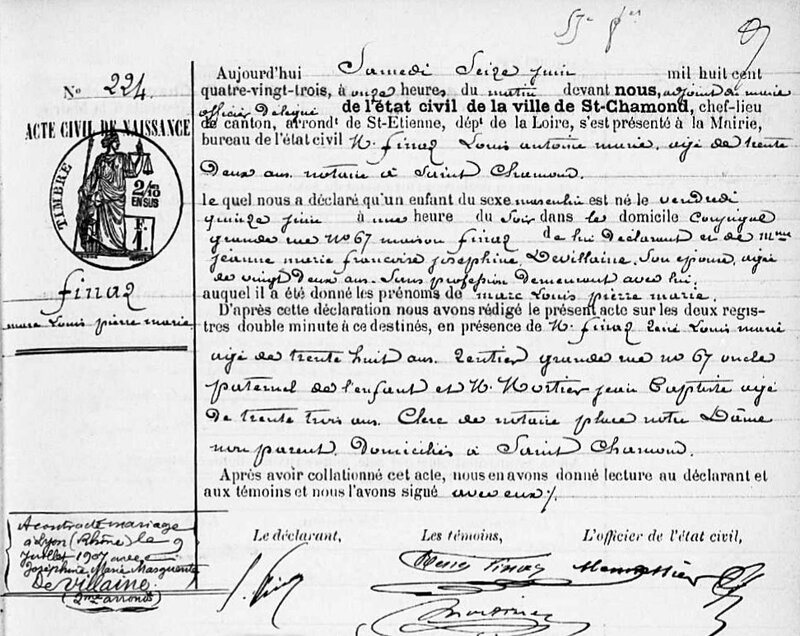 N° 224
ACTE CIVIL DE NAISSANCE
TIMBRE
2/10
EN SUS
F.
1.
finaz
marc Louis pierre marie
Aujourd'hui Samedi Seize juin mil huit cent
quatre-vingt-trois, à onze heures du matin devant nous, adjoint au maire
officier délégué de l'état civil de la ville de St-Chamond, chef-lieu
de canton, arrondt de St-Etienne, dépt de la Loire, s'est présenté à la Mairie,
bureau de l'état civil M. finaz Louis antoine marie, agé de trente
Deux ans. notaire à Saint Chamond.
le quel nous a déclaré qu'un enfant du sexe masculin est né le vendredi
quinze juin à une heure du soir dans le domicile Conjugal
grande rue no 67 maison finaz de lui Déclarant et de Mme
jeanne marie francoise joséphine Devillaine, Son épouse, agée
de vingt deux ans. Sans profession Demeurant avec lui.
auquel il a été donné les prénoms de marc Louis pierre marie.
D'après cette déclaration nous avons rédigé le présent acte sur les deux regis-
tres double minute à ce destinés, en présence de M. finaz René Louis marie
agé de trente huit ans. Rentier grande rue no 67 oncle
paternel de l'enfant et M. Mortier jean Baptiste agé
De trente trois ans. Clerc de notaire place notre Dâme
non parent. Domiciliés à Saint Chamond.
Après avoir collationné cet acte, nous en avons donné lecture au déclarant et
aux témoins et nous l'avons signé avec eux /.
Le déclarant, Les témoins, L'officier de l'état civil,
A contracté mariage
à Lyon (Rhône) le 9
Juillet 1907 avec
Joséphine Marie Marguerite
De Villaine.
(2me arrondt)